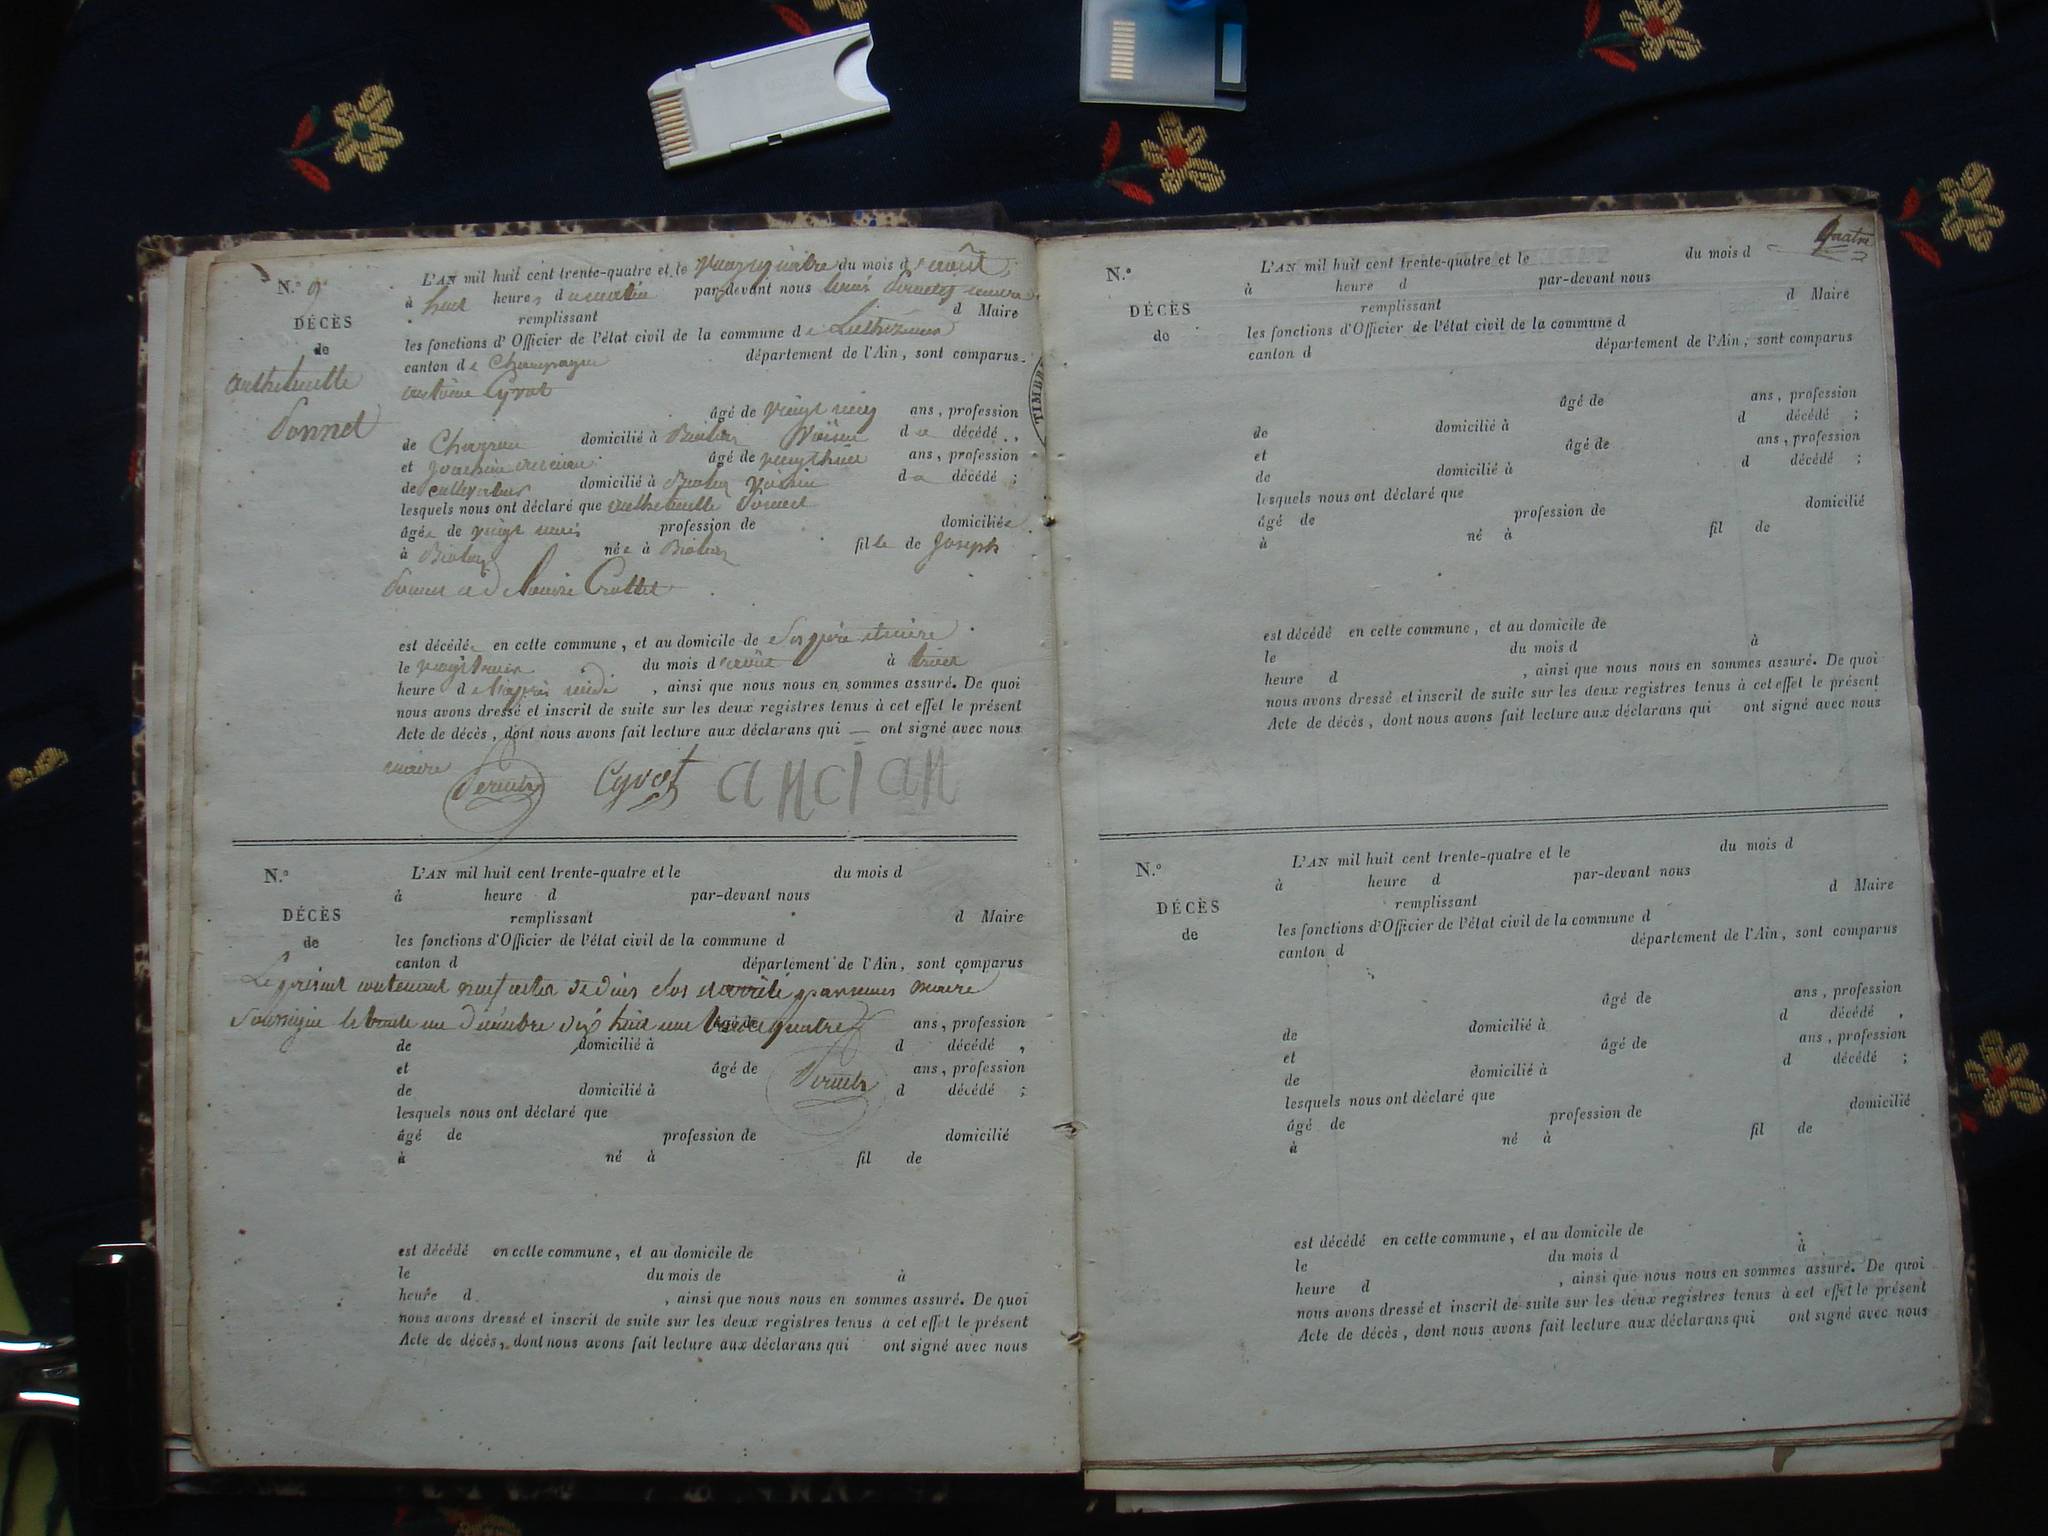 N.° 9
DÉCÈS
de
anthelmette
Donnet
L'AN mil huit cent trente-quatre et le vingt quatre du mois d'août
à huit heures du matin par-devant nous maire
remplissant d Maire
les fonctions d'Officier de l'état civil de la commune de Luthézieu
canton de Champagne département de l'Ain, sont comparus
antoine Cyvot
âgé de vingt cinq ans, profession
de Charron domicilié à voisin de décédé,
et joachim ancian âgé de vingt huit ans, profession
de cultivateur domicilié à voisin de décédé;
lesquels nous ont déclaré que anthelmette Donnet
âgée de vingt profession de domiciliée
à née à fille de Joseph
Donnet et de Crottet
est décédée en cette commune, et au domicile de Son père et mère
le vingt trois du mois d'août à trois
heure de l'après midi, ainsi que nous nous en sommes assuré. De quoi
nous avons dressé et inscrit de suite sur les deux registres tenus à cet effet le présent
Acte de décès, dont nous avons fait lecture aux déclarans qui — ont signé avec nous
maire Cyvot ancian
N.°
DÉCÈS
de
L'AN mil huit cent trente-quatre et le du mois d
à heure d par-devant nous
remplissant d Maire
les fonctions d'Officier de l'état civil de la commune d
canton d département de l'Ain, sont comparus
Le présent contenant neuf actes de décès clos et arrêté par nous maire
Soussigné le trente un Décembre dix huit cent trente quatre
âgé de ans, profession
de domicilié à d décédé,
et âgé de ans, profession
de domicilié à d décédé;
lesquels nous ont déclaré que
âgé de profession de domicilié
à né à fil de
est décédé en cette commune, et au domicile de
le du mois de à
heure d , ainsi que nous nous en sommes assuré. De quoi
nous avons dressé et inscrit de suite sur les deux registres tenus à cet effet le présent
Acte de décès, dont nous avons fait lecture aux déclarans qui ont signé avec nous
TIMBRE
Quatre
N.°
DÉCÈS
de
L'AN mil huit cent trente-quatre et le du mois d
à heure d par-devant nous
remplissant d Maire
les fonctions d'Officier de l'état civil de la commune d
canton d département de l'Ain, sont comparus
âgé de ans, profession
de domicilié à d décédé;
et âgé de ans, profession
de domicilié à d décédé;
lesquels nous ont déclaré que
âgé de profession de domicilié
à né à fil de
est décédé en cette commune, et au domicile de
le du mois d à
heure d , ainsi que nous nous en sommes assuré. De quoi
nous avons dressé et inscrit de suite sur les deux registres tenus à cet effet le présent
Acte de décès, dont nous avons fait lecture aux déclarans qui ont signé avec nous
N.°
DÉCÈS
de
L'AN mil huit cent trente-quatre et le du mois d
à heure d par-devant nous
remplissant d Maire
les fonctions d'Officier de l'état civil de la commune d
canton d département de l'Ain, sont comparus
âgé de ans, profession
de domicilié à d décédé,
et âgé de ans, profession
de domicilié à d décédé;
lesquels nous ont déclaré que
âgé de profession de domicilié
à né à fil de
est décédé en cette commune, et au domicile de
le du mois d à
heure d , ainsi que nous nous en sommes assuré. De quoi
nous avons dressé et inscrit de suite sur les deux registres tenus à cet effet le présent
Acte de décès, dont nous avons fait lecture aux déclarans qui ont signé avec nous